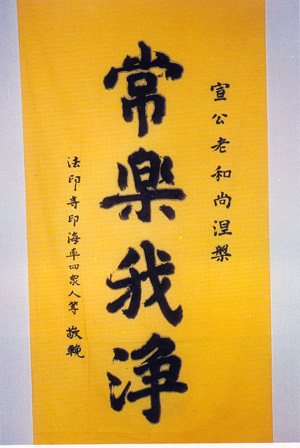 宣公老和尚涅槃
常樂我淨
法印寺印海率四眾人等 敬輓